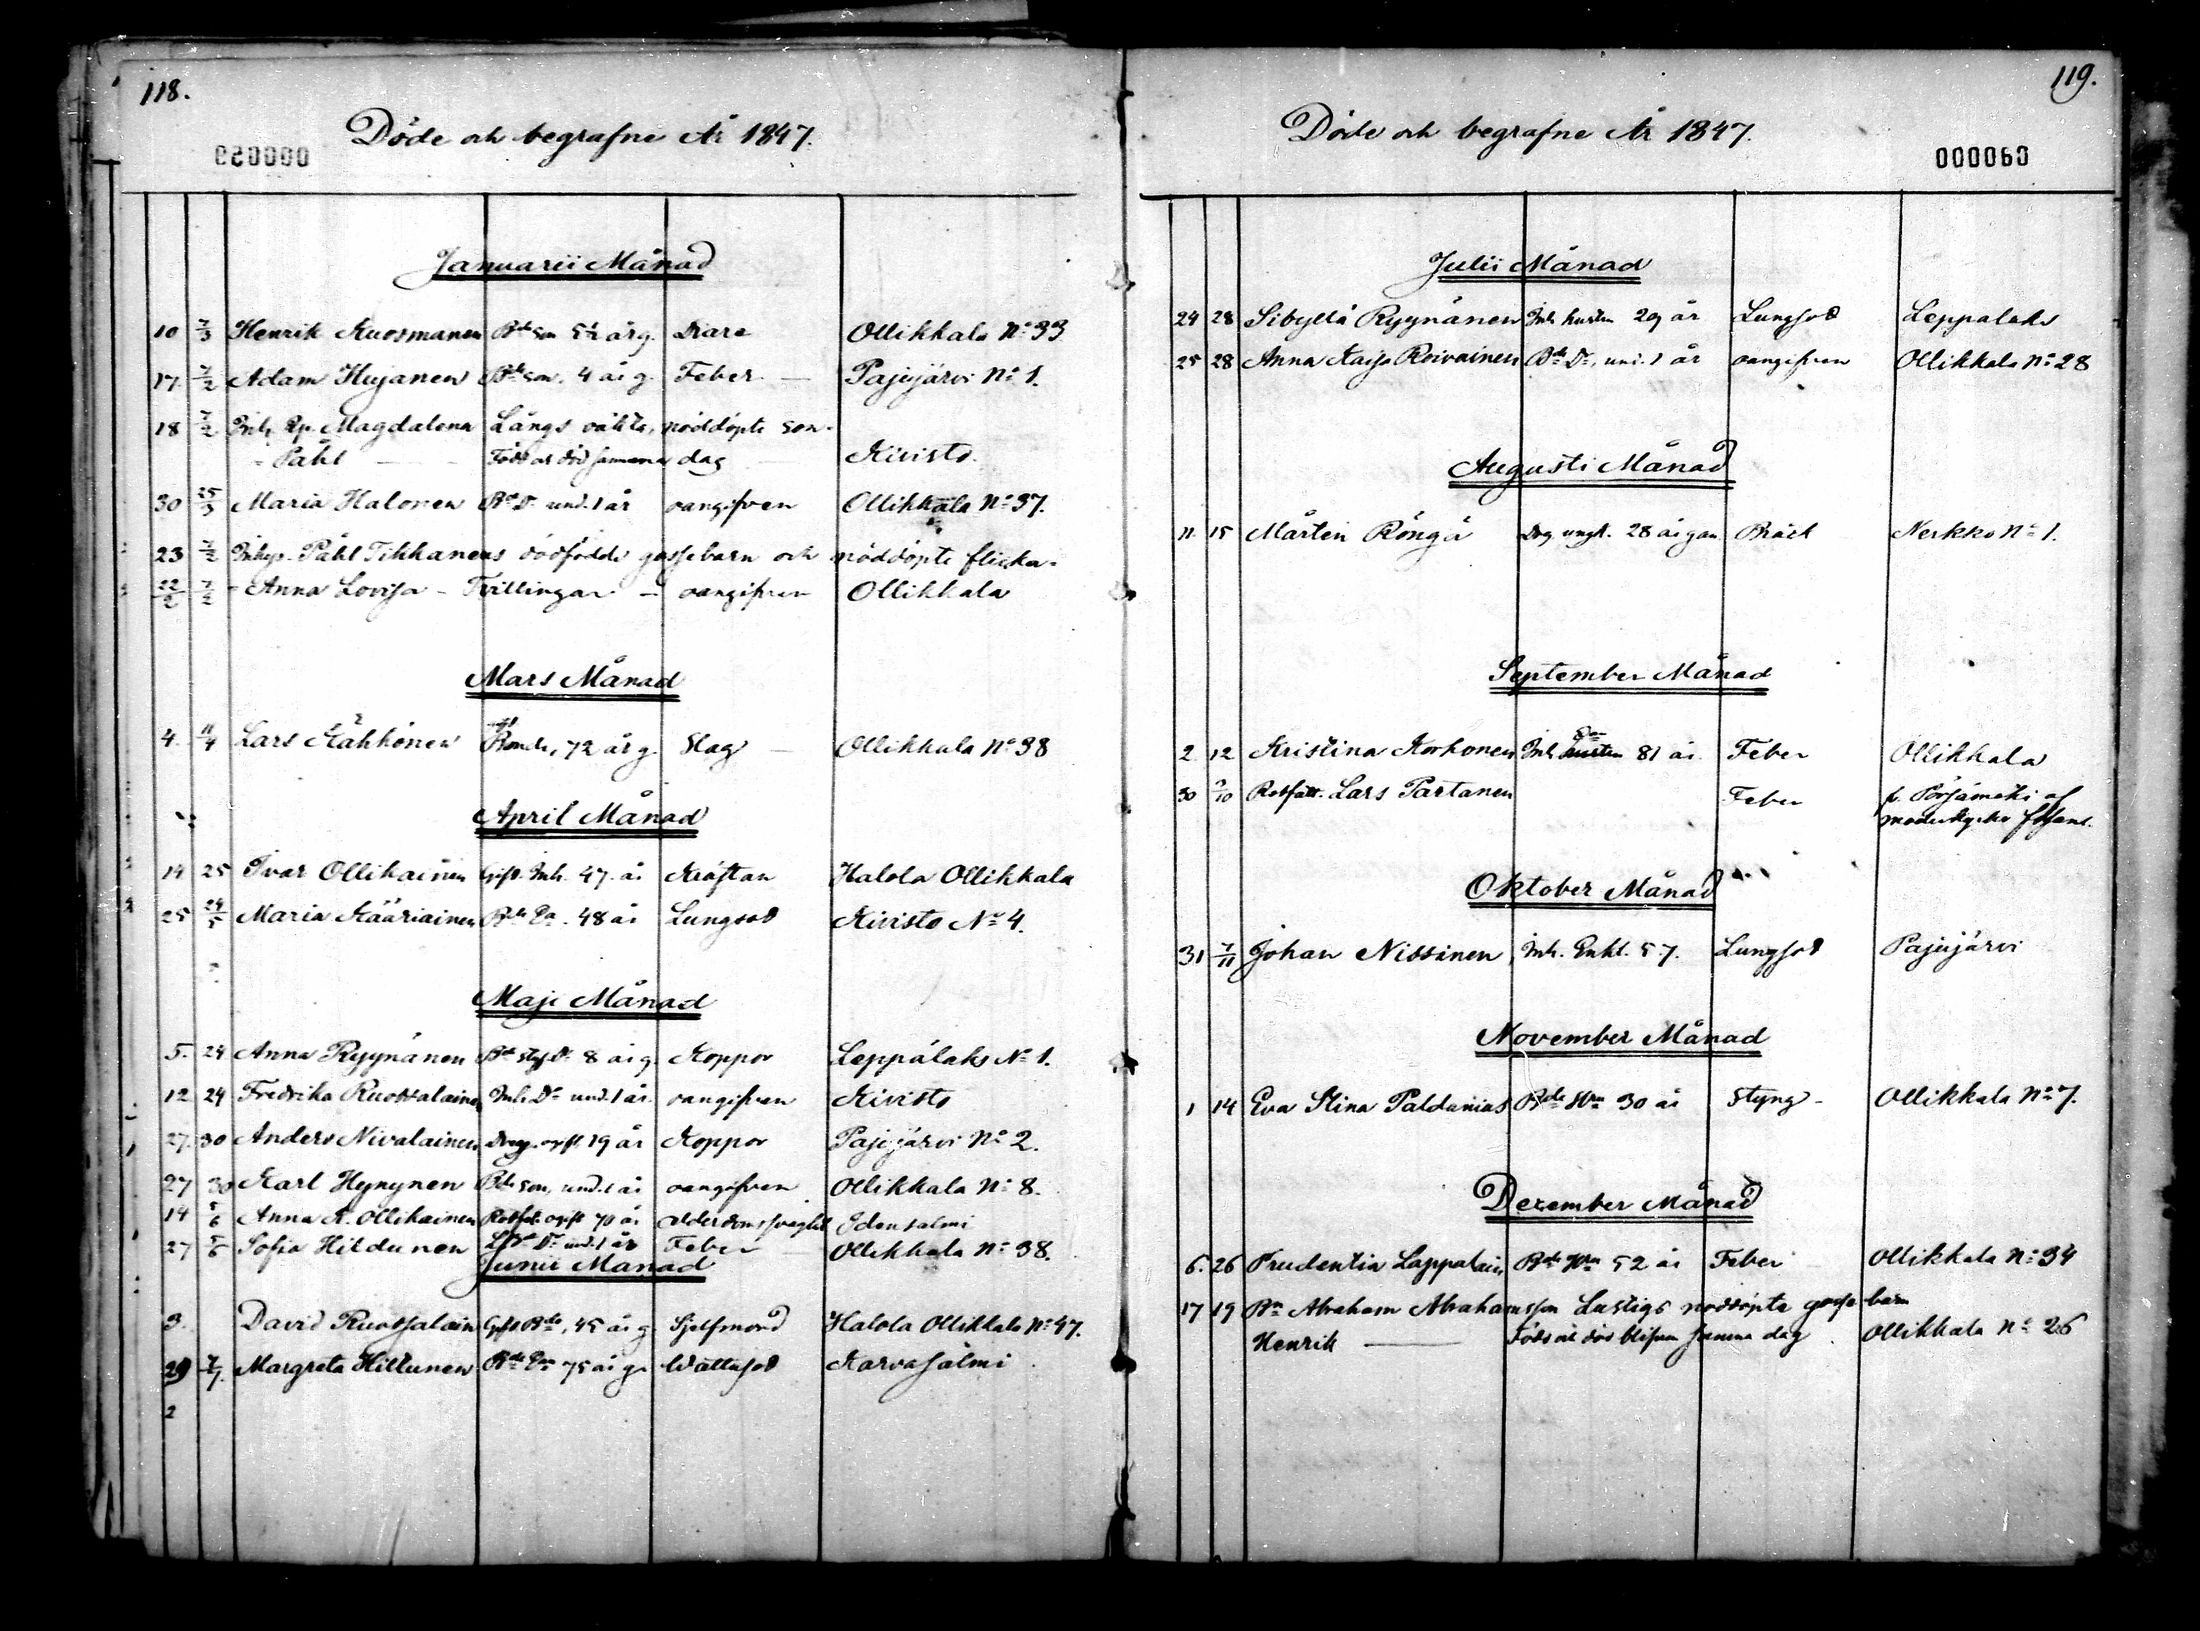 118.
Döde och begrafne År 1847.
000059
Januarii Månad
10 7/3 Henrik Kuosmanen Bde son 5½ år g. Diare Ollikkala No 33
17 7/2 Adam Hujanen Bde son. 4 år g. Feber — Pajujärvi No 1.
18 7/2 Inh. Magdalena Långs oäkta, nöddöpte son
- Påhl — Född och död samma dag — Kivistö.
30 25/3 Maria Halonen Bde Dr und. 1 år oangifven Ollikkala No 37.
23 7/2 Inhys. Påhl Tikkanens dödfödde gossebarn och nöddöpte flicka.
22/2 7/2 - Anna Lovisa - Tvillingar — oangifven Ollikkala
Mars Månad
4. 11/4 Lars Kähkönen Bonde, 72 år g. Slag — Ollikkala No 38
April Månad
14 25 Ivar Ollikainen Gift. Inh. 47 år Kräftan Halola Ollikkala
25 24/5 Maria Kääriainen Bde Ea. 48 år Lungsot Kivistö No 4.
Maji Månad
5. 24 Anna Ryynänen Bde styf Dr 8 år g. Koppor Leppälaks No 1.
12 24 Fredrika Ruotsalainen Inh. Dr und. 1 år. oangifven Kivistö
27. 30 Anders Nivalainen Dreng. ogift 19 år Koppor Pajujärvi No 2.
27 30 Karl Hynynen Bde son, und. 1 år oangifven Ollikkala No 8.
14 5/6 Anna K. Ollikainen Rotfat. ogift 70 år Ålderdomssvaghet Idensalmi
27 5/6 Sofia Hildunen Dr und. 1 år Feber — Ollikkala No 38.
Junii Månad
3. David Ruotsalain Gift Bde, 45 år g. Sjelfmord Halola Ollikkala No 47.
29 7/7. Margreta Hiltunen Bde Ea 75 år g. Wattusot Karvasalmi
2
119.
Döde och begrafne År 1847.
000060
Julii Månad
24 28 Sibylla Ryynänen Inh. hustru 29 år Lungsot Leppälaks
25 28 Anna Kaisa Roivainen Bde Dr, und. 1 år oangifven Ollikkala No 28
Augusti Månad
11 15 Mårten Röngä Drg ungk. 28 år gam. Bråck Nerkko No 1.
September Månad
2 12 Kristina Korhonen Inh. Ea hustru 81 år. Feber Ollikkala
30 3/10 Rotfatt. Lars Partanen Feber fr. Pörsämäki af
moderkyrko förs.
Oktober Månad
31 7/11 Johan Nissinen Inh. Enkl. 57. Lungsot Pajujärvi
November Månad
1 14 Eva Stina Paldanius Bde Hu 30 år Styng - Ollikkala No 7.
December Månad
6. 26 Prudentia Lappalain Bde Hu 52 år Feber Ollikkala No 34
17 19 Bn Abraham Abrahamsson Lustigs nöddöpte gosse barn
Henrik — Född och död blifven samma dag. Ollikkala No 26